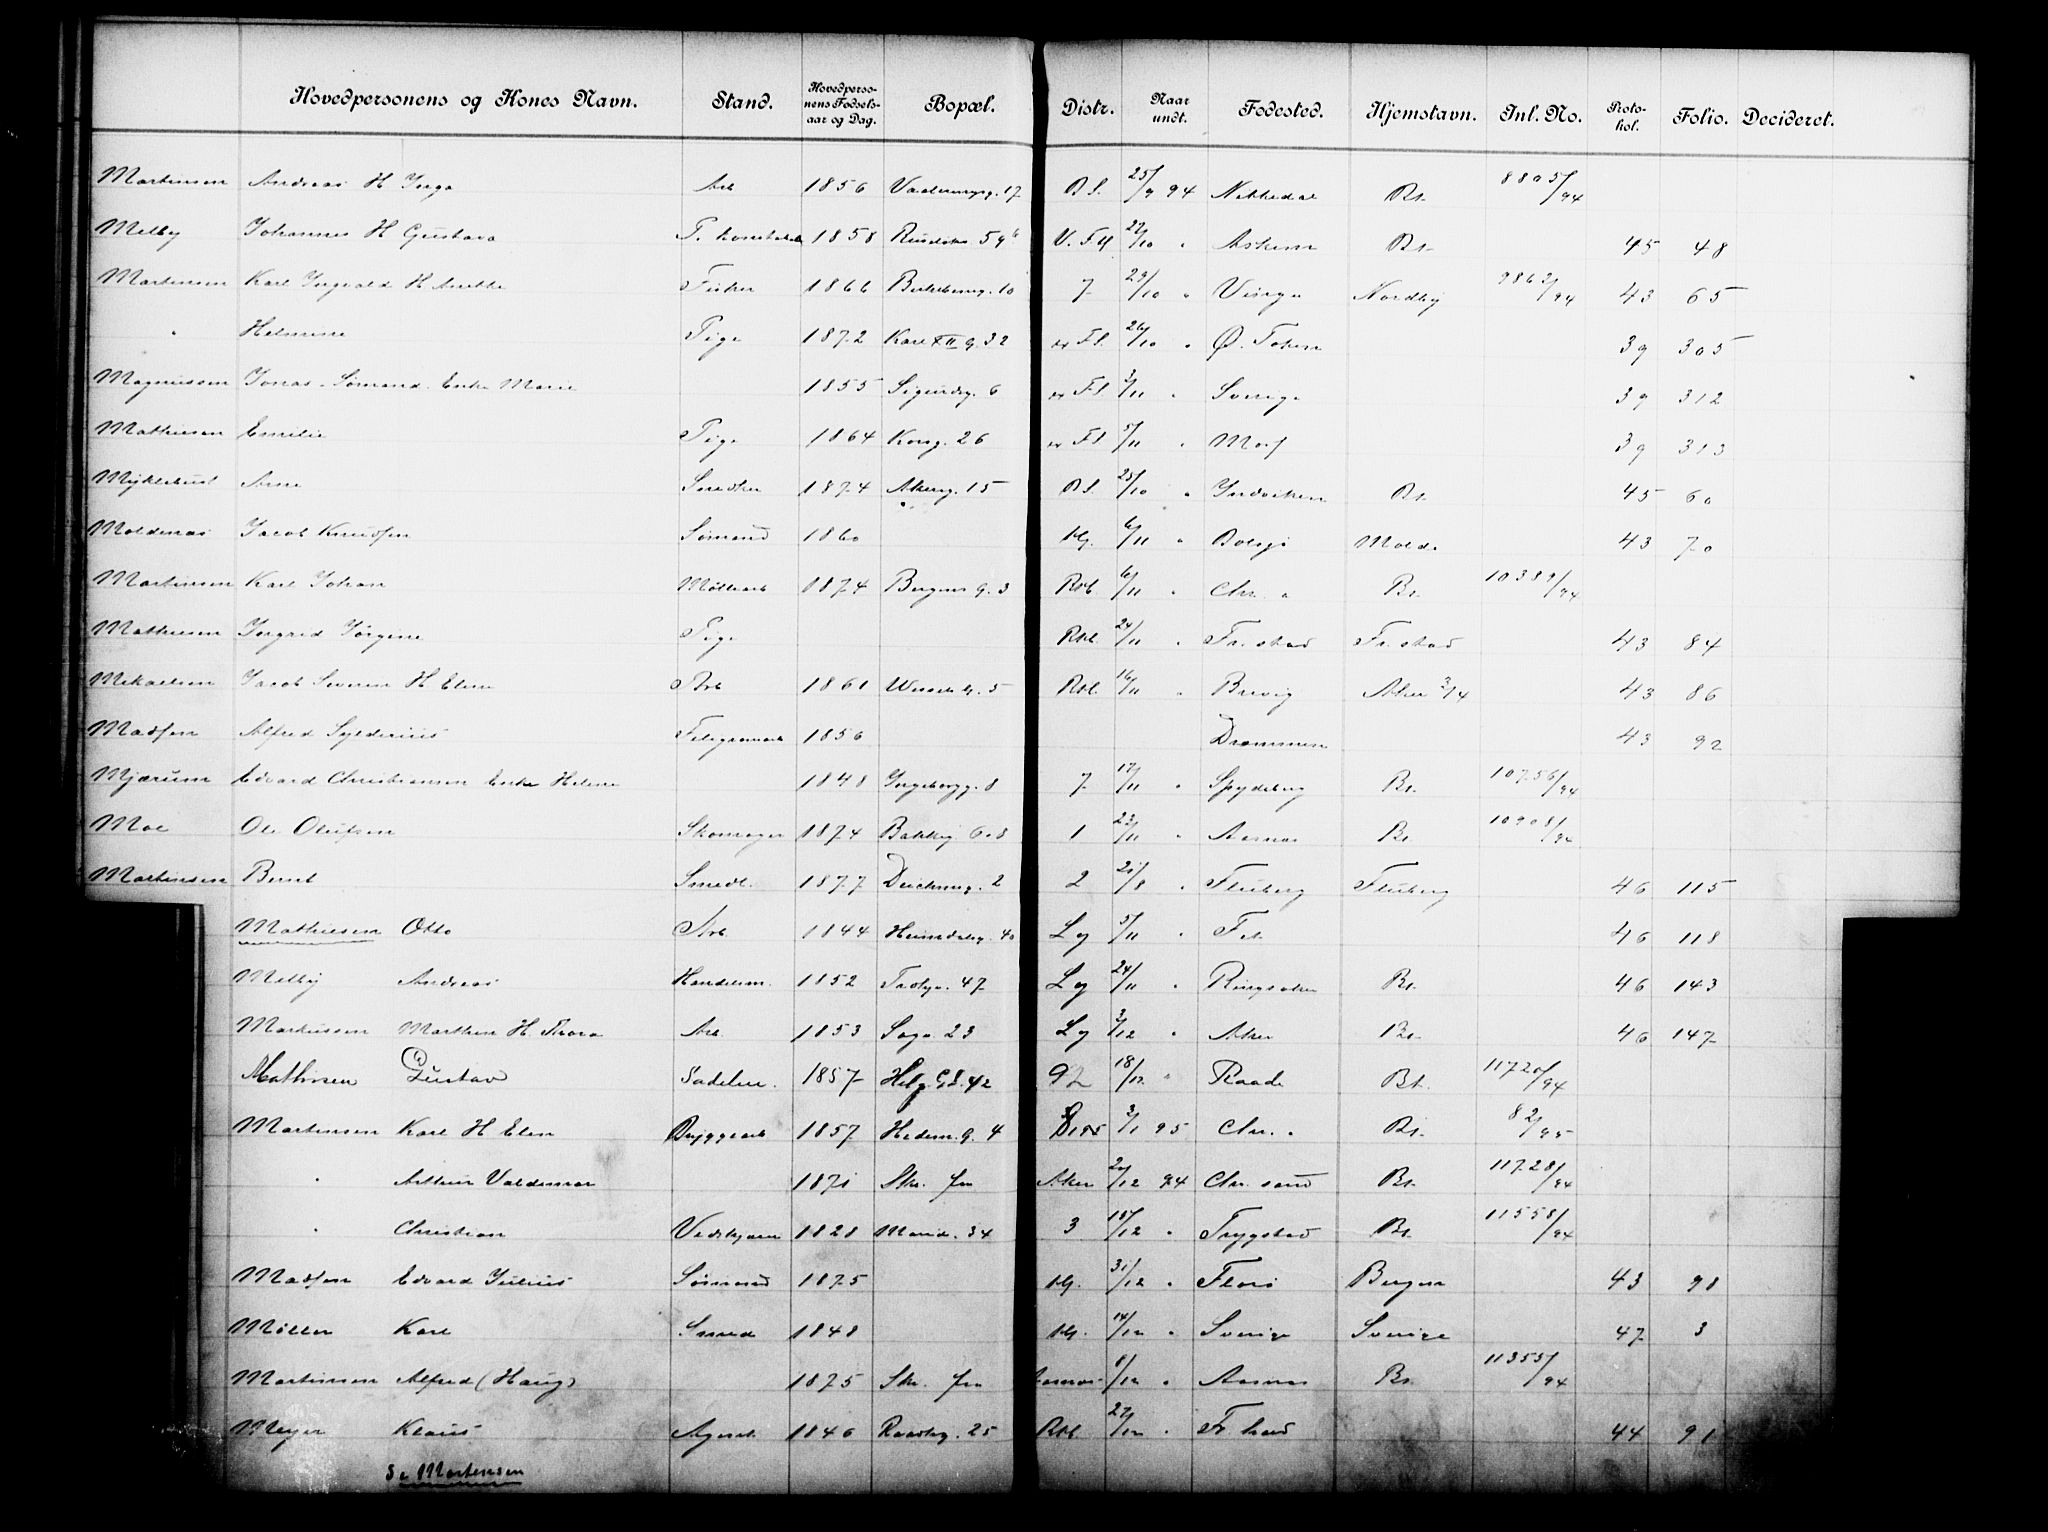 Hovedpersonens og Kones Navn. Stand. Hovedpersonens Fødselsaar og Dag. Bopæl. Distr. Naar undt. Fødested. Hjemstavn. Inl. No. Protokol. Folio. Decideret.
Martinsen Andreas H Inga Arb 1856 17 B S. 25/9 94 Nittedal Bt. 8805/94
Melby Johannes H Gustava 1858 59 b V. Fll 22/10 " Askim Bt. 45 48
Martinsen Karl Ingvald H Anette Fisker 1866 10 7 29/10 " Nordby 9862/94 43 65
" Helmine Pige 1872 Karl XII g. 32 Fl. 26/10 " Ø. Toten 39 305
Magnussen Jonas. Sømand. Enke Marie 1855 Sigurdsg. 6 Fl 3/11 " Sverige 39 312
Mathiesen Emilie Pige 1864 Kong. 26 Fl 5/11 " Moss 39 313
Myklebust Arne Snedker 1874 Akersg. 15 B S. 25/10 " Indviken Bt. 45 60
Moldenæs Jacob Knudsen Sømand 1860 6/11 " Bolsø Molde 43 70
Martinsen Karl Johan Møllearb 1874 Bergens g. 3 Rtb. 6/11 " Chr. a Bt. 10389/94
Mathiesen Ingrid Jørgine Pige Rtb. 24/11 " Fr. stad Fr. stad 43 84
Mikaelsen Jacob H Elise Arb 1861 5 Rtb. 16/11 " Brevig Aker 43 86
Madsen Alfred 1856 Drammen 43 92
Mjærum Edvard Christiansen Enke Helene 1848 Ingeborgg. 8 7 17/11 " Spydeberg Bt. 10756/94
Moe Ole Olufsen Skomager 1874 Bakkeg 6 1 23/11 " Aasnæs Bt. 10908/94
Martinsen Bernt Smedl. 1877 Deichmsg. 2 2 21/8 " Fluberg Fluberg 46 115
Mathiesen Otto Arb. 1844 Heimdalsg. 40 Lg 5/11 " Fet 46 118
Melby Andreas Handelsm. 1852 47 Lg 24/11 " Ringsaker Bt. 46 143
Markussen Marthin H Thora Arb. 1853 23 Lg 3/12 " Aker Bt. 46 147
Mathisen Gustav Sadelm. 1857 Helg. G S. 42 92 18/12 " Raade Bt. 11720/94
Martinsen Karl H Elen Bryggearb 1857 Hedem. g. 4 2/1 95 Chr. a Bt. 82/95
" Arthur Valdemar 1871 Str. fm Aker 20/12 94 Chr. sand Bt. 11728/94
" Christian 1828 Marid. 34 3 15/12 " Trygstad Bt. 11558/94
Madsen Edvard Julius Sømand 1875 31/12 " Florø Bergen 43 98
Möller Karl Smed 1848 14/12 " Sverige Sverige 47 3
Martinsen Alfred (Haug) 1875 Str. fm Aasnæs 8/12 " Aasnæs Bt. 11355/94
Meyer Klaus Agent 1846 25 Rtb. 27/12 " Fr. hald 44 91
Se Mortensen